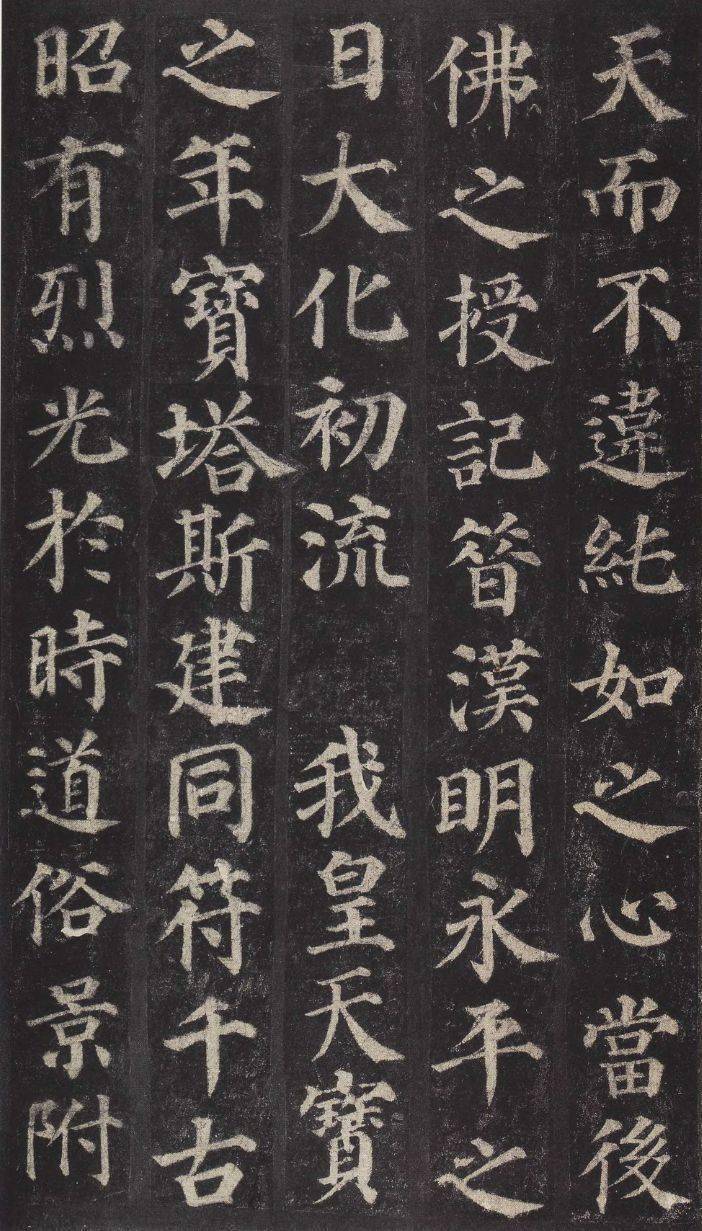 天而不違純如之心當後
佛之授記昝漢明永平之
日大化初流　我皇天寶
之年寶塔斯建同符千古
昭有烈光於時道俗景附